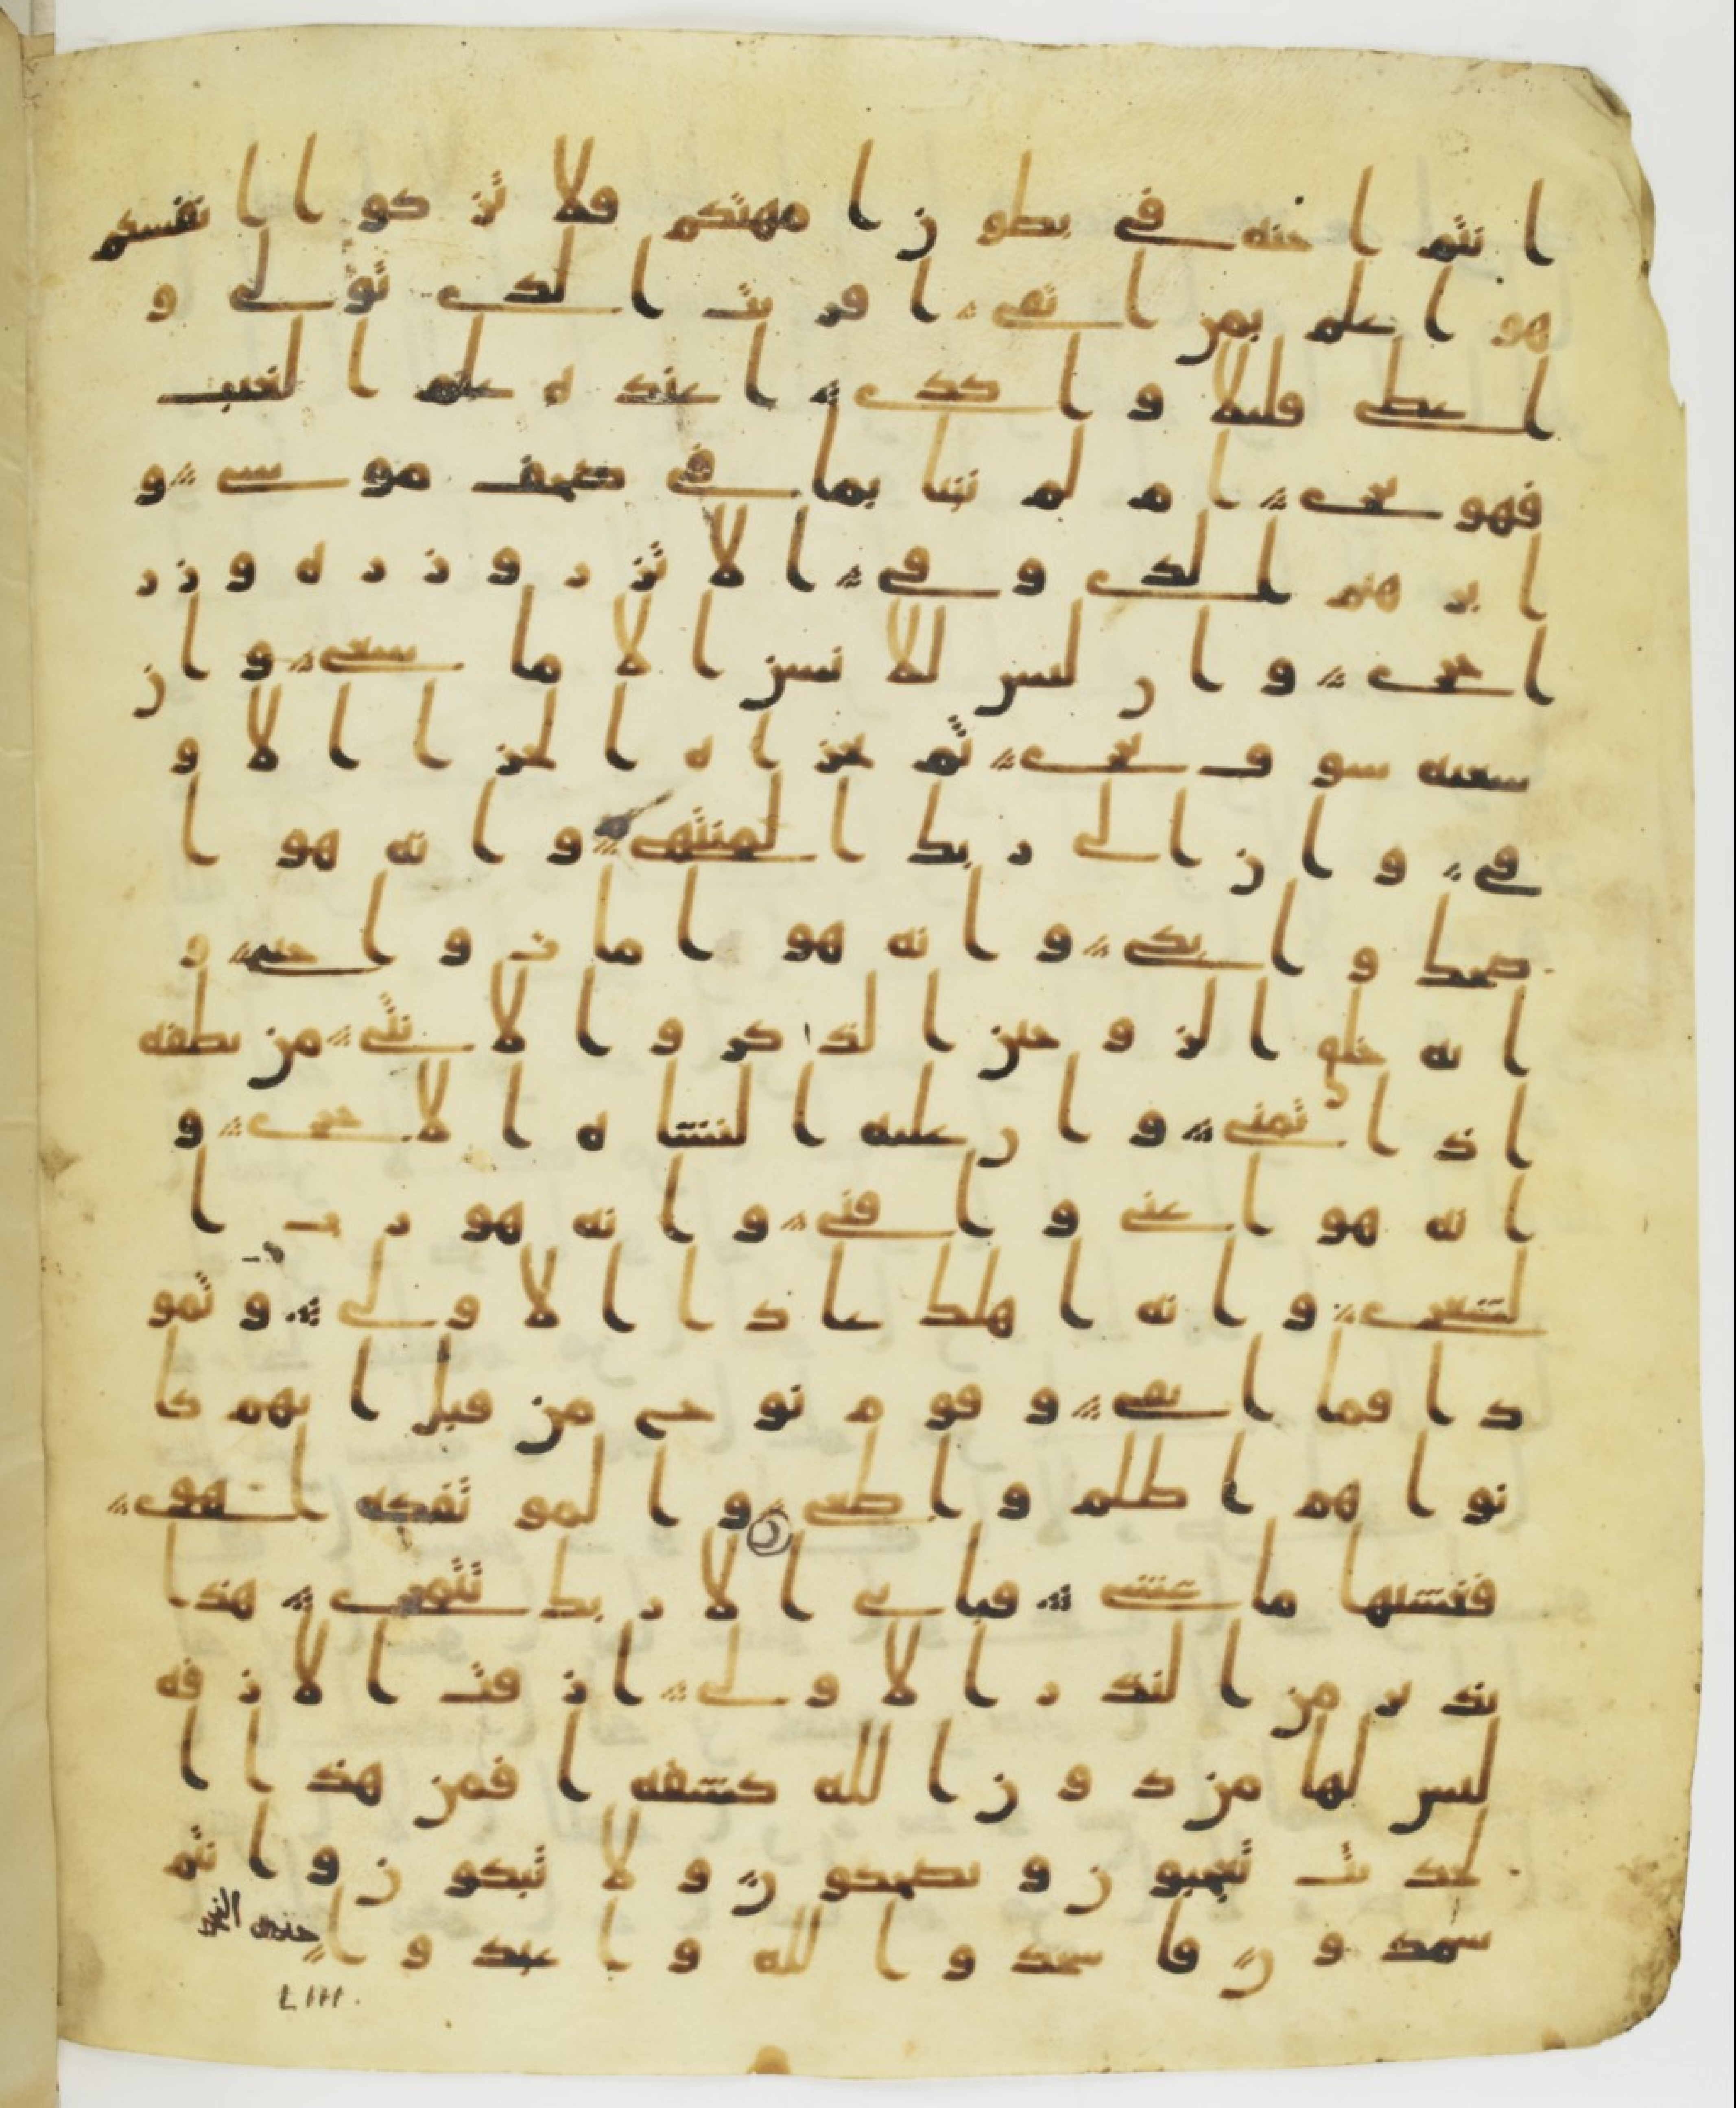 انتم اجنه في بطون امهتكم فلا تزكوا انفسكم
هو اعلم بمن اتقى افريت الذي تولى و
اعطى قليلا واكدى اعنده علم الغيب
فهو يرى ام لم ينبا بما في صحف موسى و
ابرهيم الذي وفى الا تزر وزره وزر
اخرى وان ليس للانسن الا ما سعى وان
سعيه سوف يرى ثم يجزاه الجزا الاو
فى وان الى ربك المنتهى وانه هو ا
ضحك وابكى وانه هو امات واحيى و
انه خلق الزوجين الذكر والانثى من نطفه
اذا تمنى وان عليه النشاه الاخرى و
انه هو اغنى واقنى وانه هو رب ا
لشعرى وانه اهلك عادا الاولى وثمو
دا فما ابقى وقوم نوح من قبل انهم كا
نوا هم اظلم واطغى والموتفكه اهوى
فغشيها ما غشى فباي الا ربك تتمرى هذا
نذير من النذر الاولى ازفت الازفه
ليس لها من دون الله كشفه افمن هذا ا
لحديث تعجبون وتضحكون ولا تبكون وانتم
سمدون فاسجدوا لله واعبدوا
النجم
LIII.